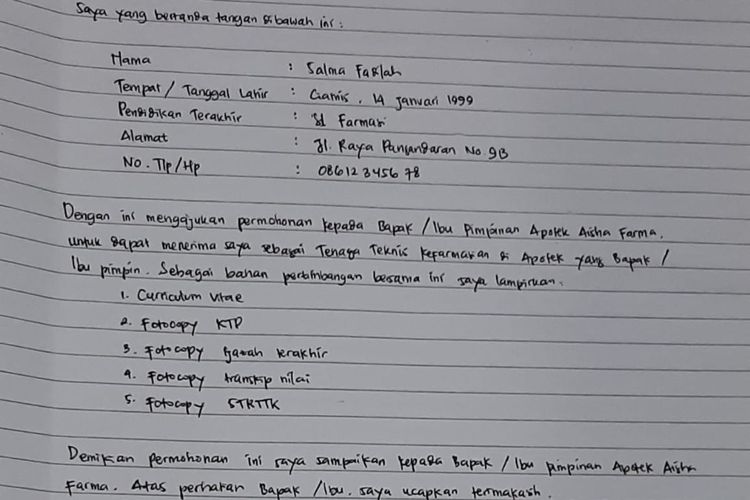 Saya yang bertanda tangan dibawah ini :
Nama : Salma Fadlah
Tempat / Tanggal Lahir : Ciamis, 14 Januari 1999
Pendidikan Terakhir : S1 Farmasi
Alamat : Jl. Raya Pangandaran No. 9B
No. Tlp/Hp : 086123456 78
Dengan ini mengajukan permohonan kepada Bapak / Ibu Pimpinan Apotek Aisha Farma,
untuk dapat menerima saya sebagai Tenaga Teknis kefarmasian di Apotek yang Bapak /
Ibu pimpin. Sebagai bahan pertimbangan bersama ini saya lampirkan :
1. Curriculum Vitae
2. Fotocopy KTP
3. Fotocopy Ijazah terakhir
4. Fotocopy transkip nilai
5. Fotocopy STRTTK
Demikian permohonan ini saya sampaikan kepada Bapak / Ibu pimpinan Apotek Aisha
Farma. Atas perhatian Bapak /Ibu, saya ucapkan terimakasih.